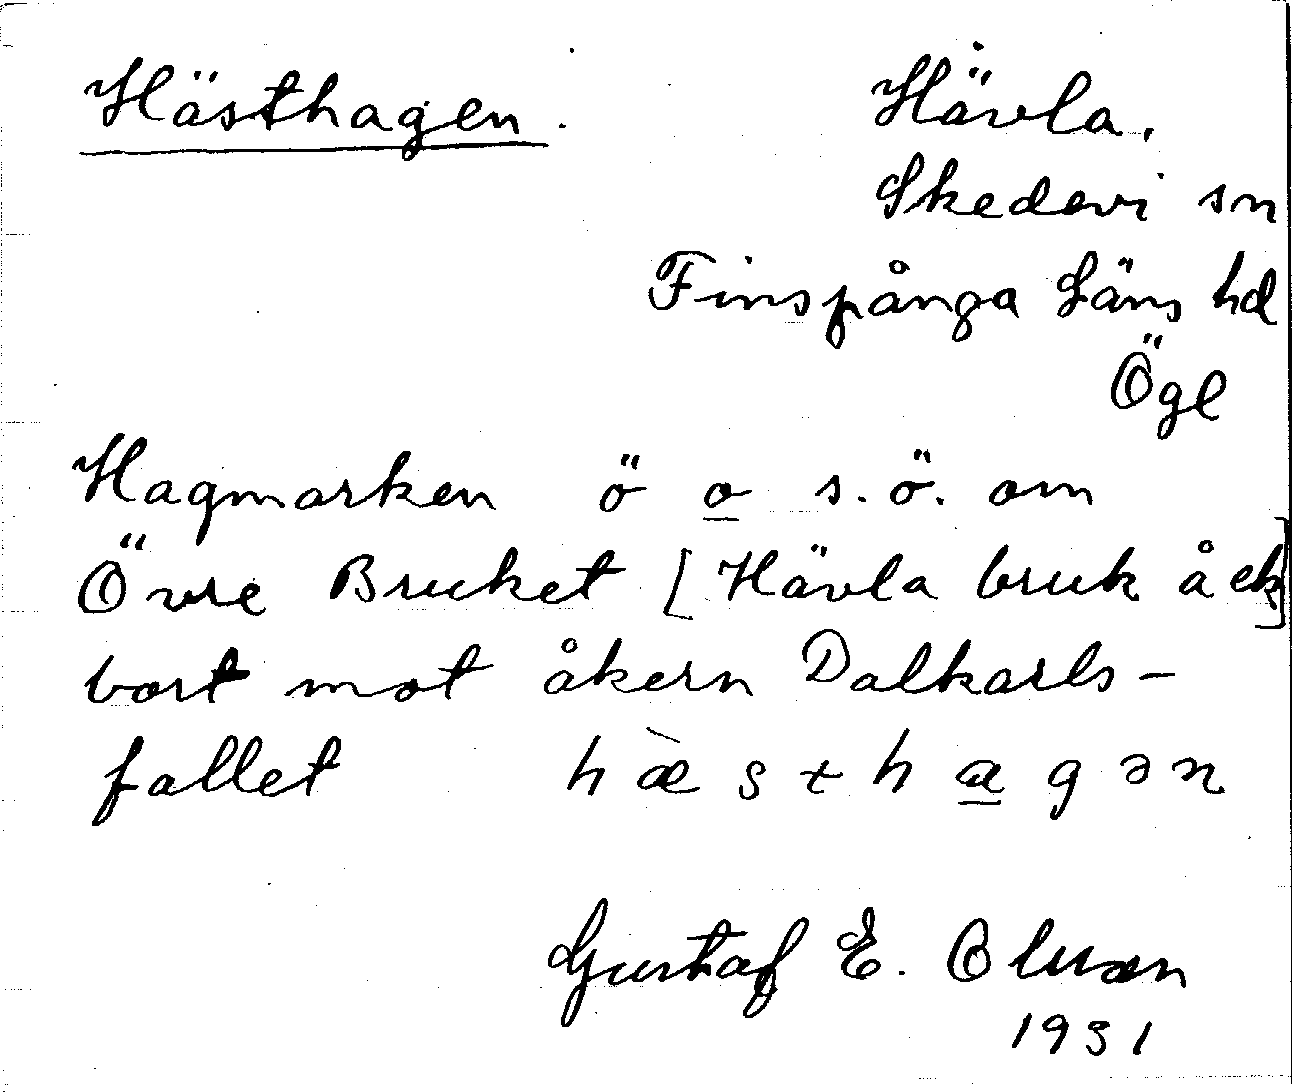 Hästhagen. Hävla,
Skedevi sn
Finspånga Läns hd
Ögl
Hagmarken ö o s.ö. om
Övre Bruket [Hävla bruk å ek]
bort mot åkern Dalkarls-
fallet hæ̀sthagən
Gustaf E. Olsson
1931